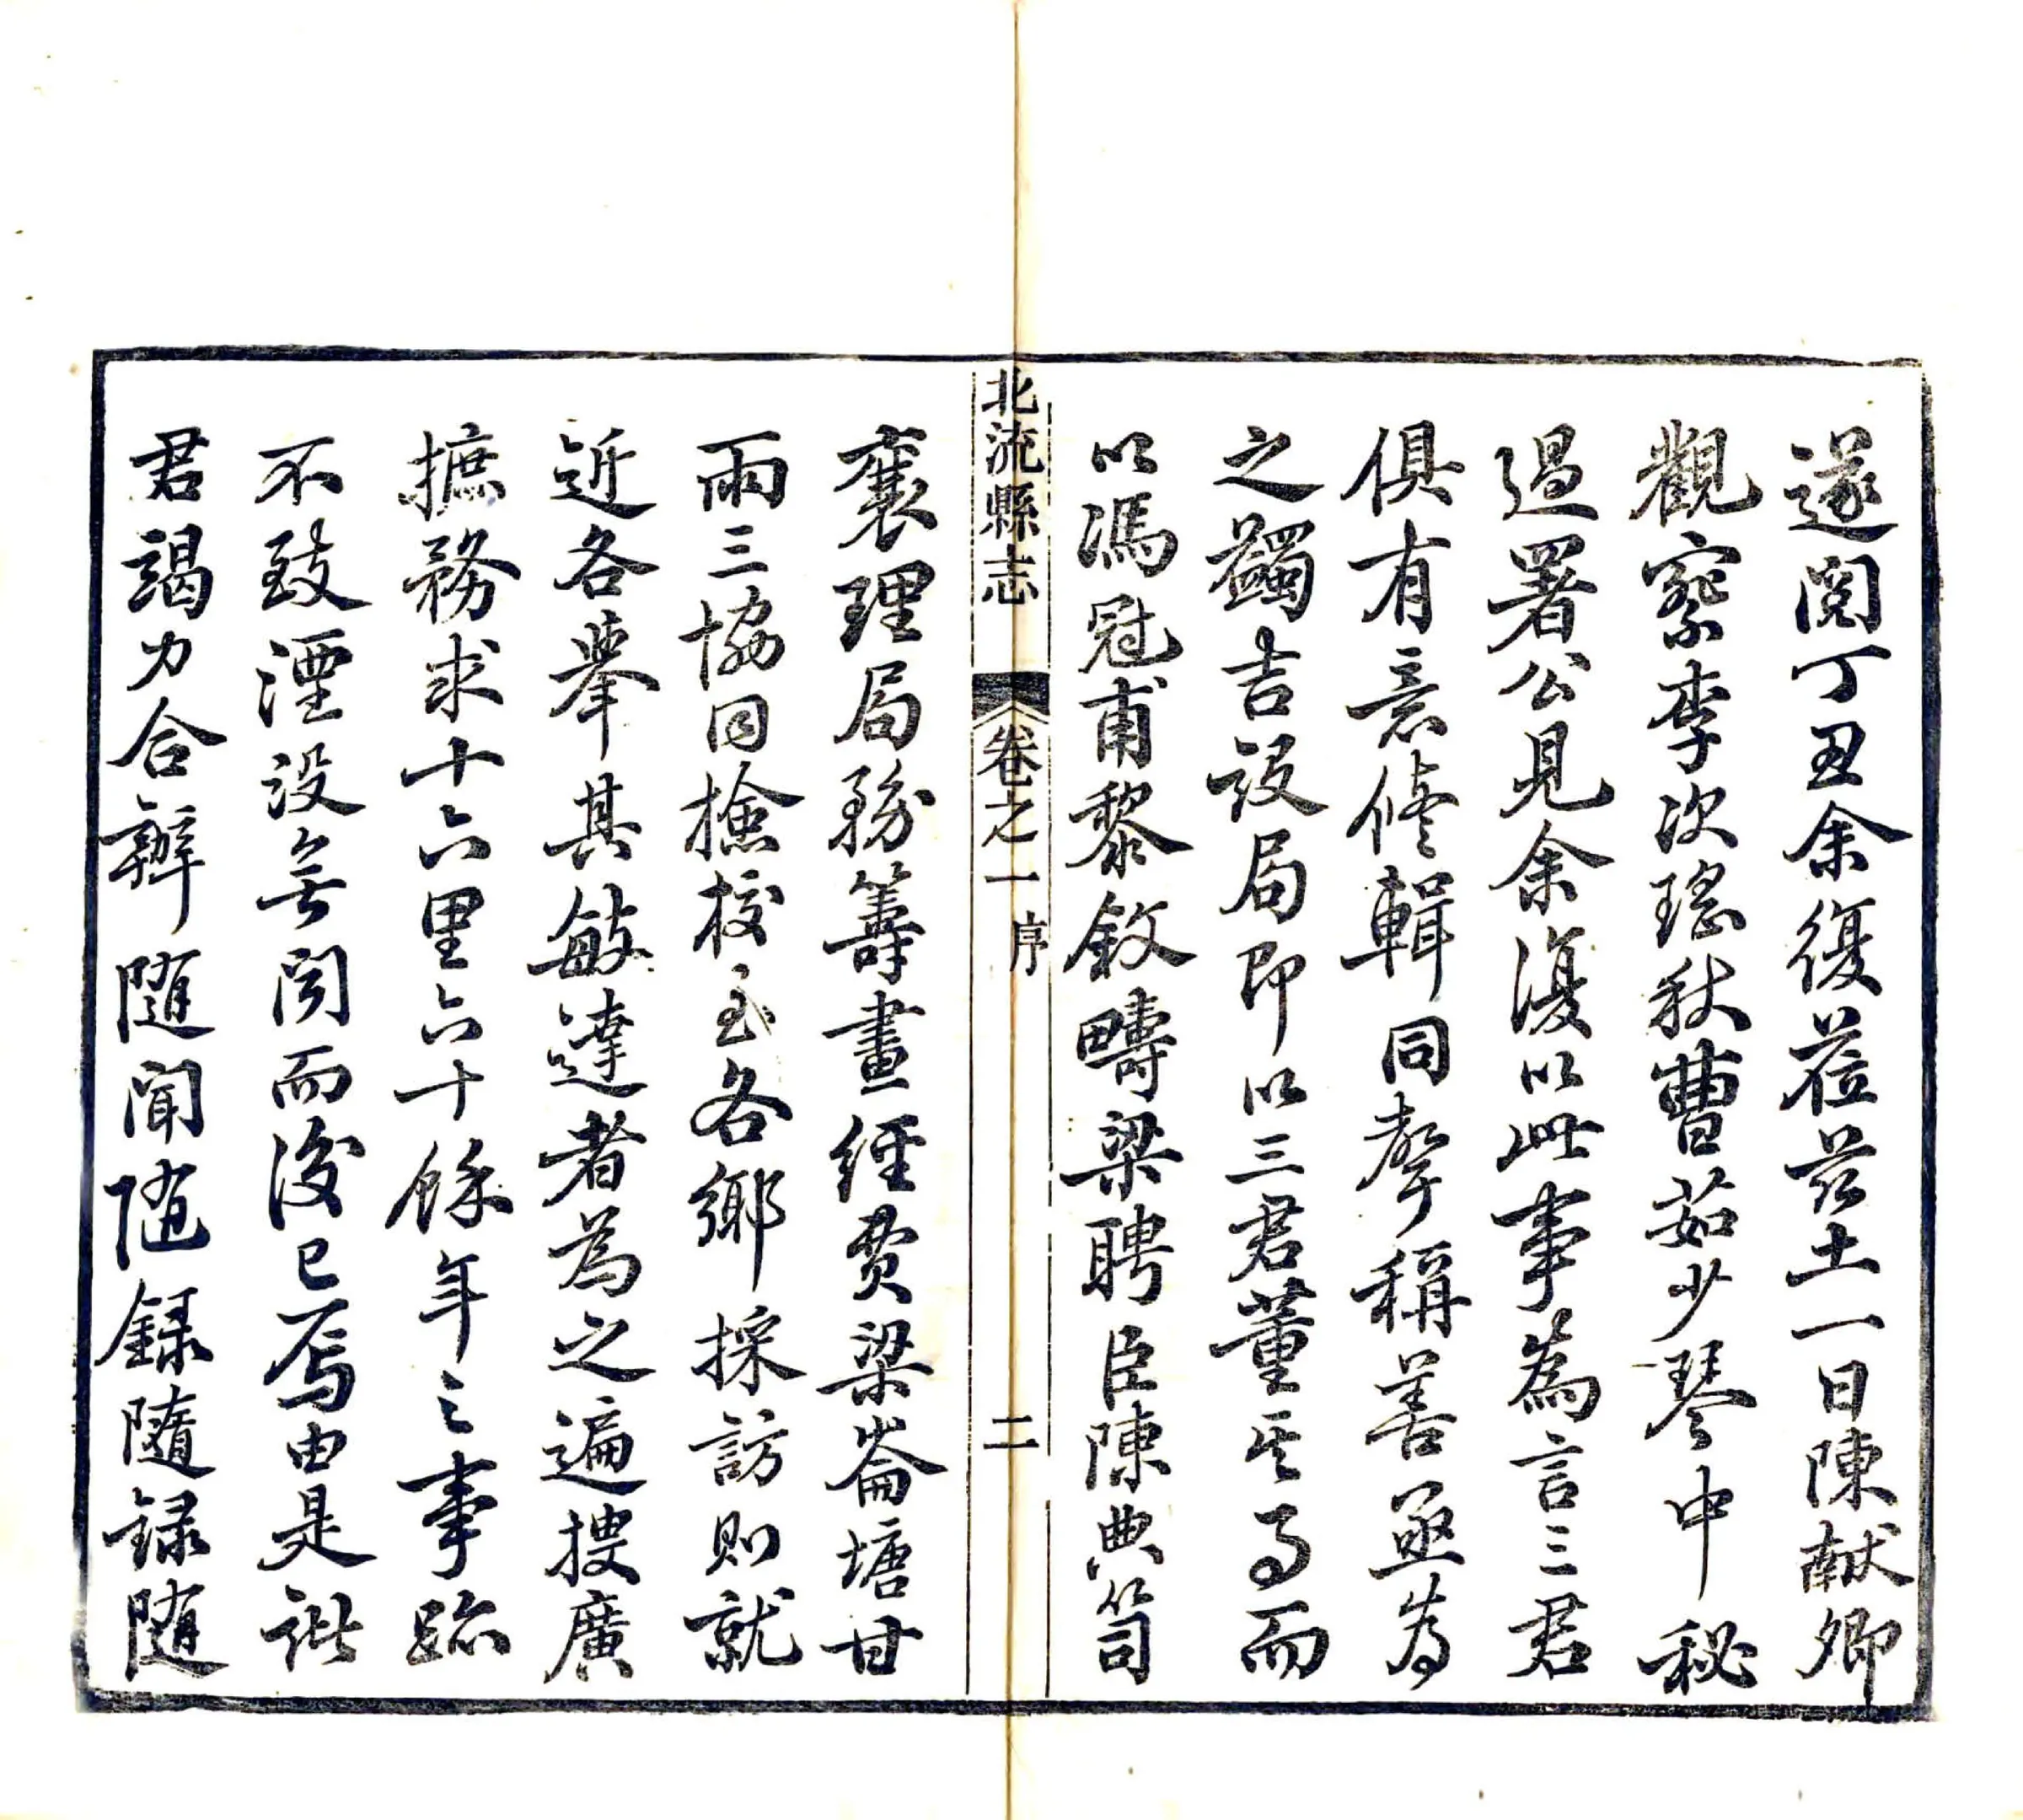 遂閱丁丑余復蒞茲土一日陳献卿
觀察李次瑤秋曹茹少琴中秘
過署公見余復以此事為言三君
俱有意修輯同聲稱善亟為
之蠲吉設局即以三君董其事而
以馮冠甫黎敘疇梁聘臣陳典笥
北流縣志 卷之一 序 二
襄理局務籌畫經費梁崙塘甘
雨三協同檢校至各鄉採訪則就
近各舉其敏達者為之遍搜廣
摭務求十六里六十餘年之事跡
不致湮没無聞而後已焉由是諸
君竭力合辦隨聞隨録隨録隨